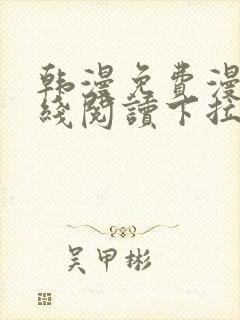 韩漫免费漫
线阅读下拉
吴甲彬